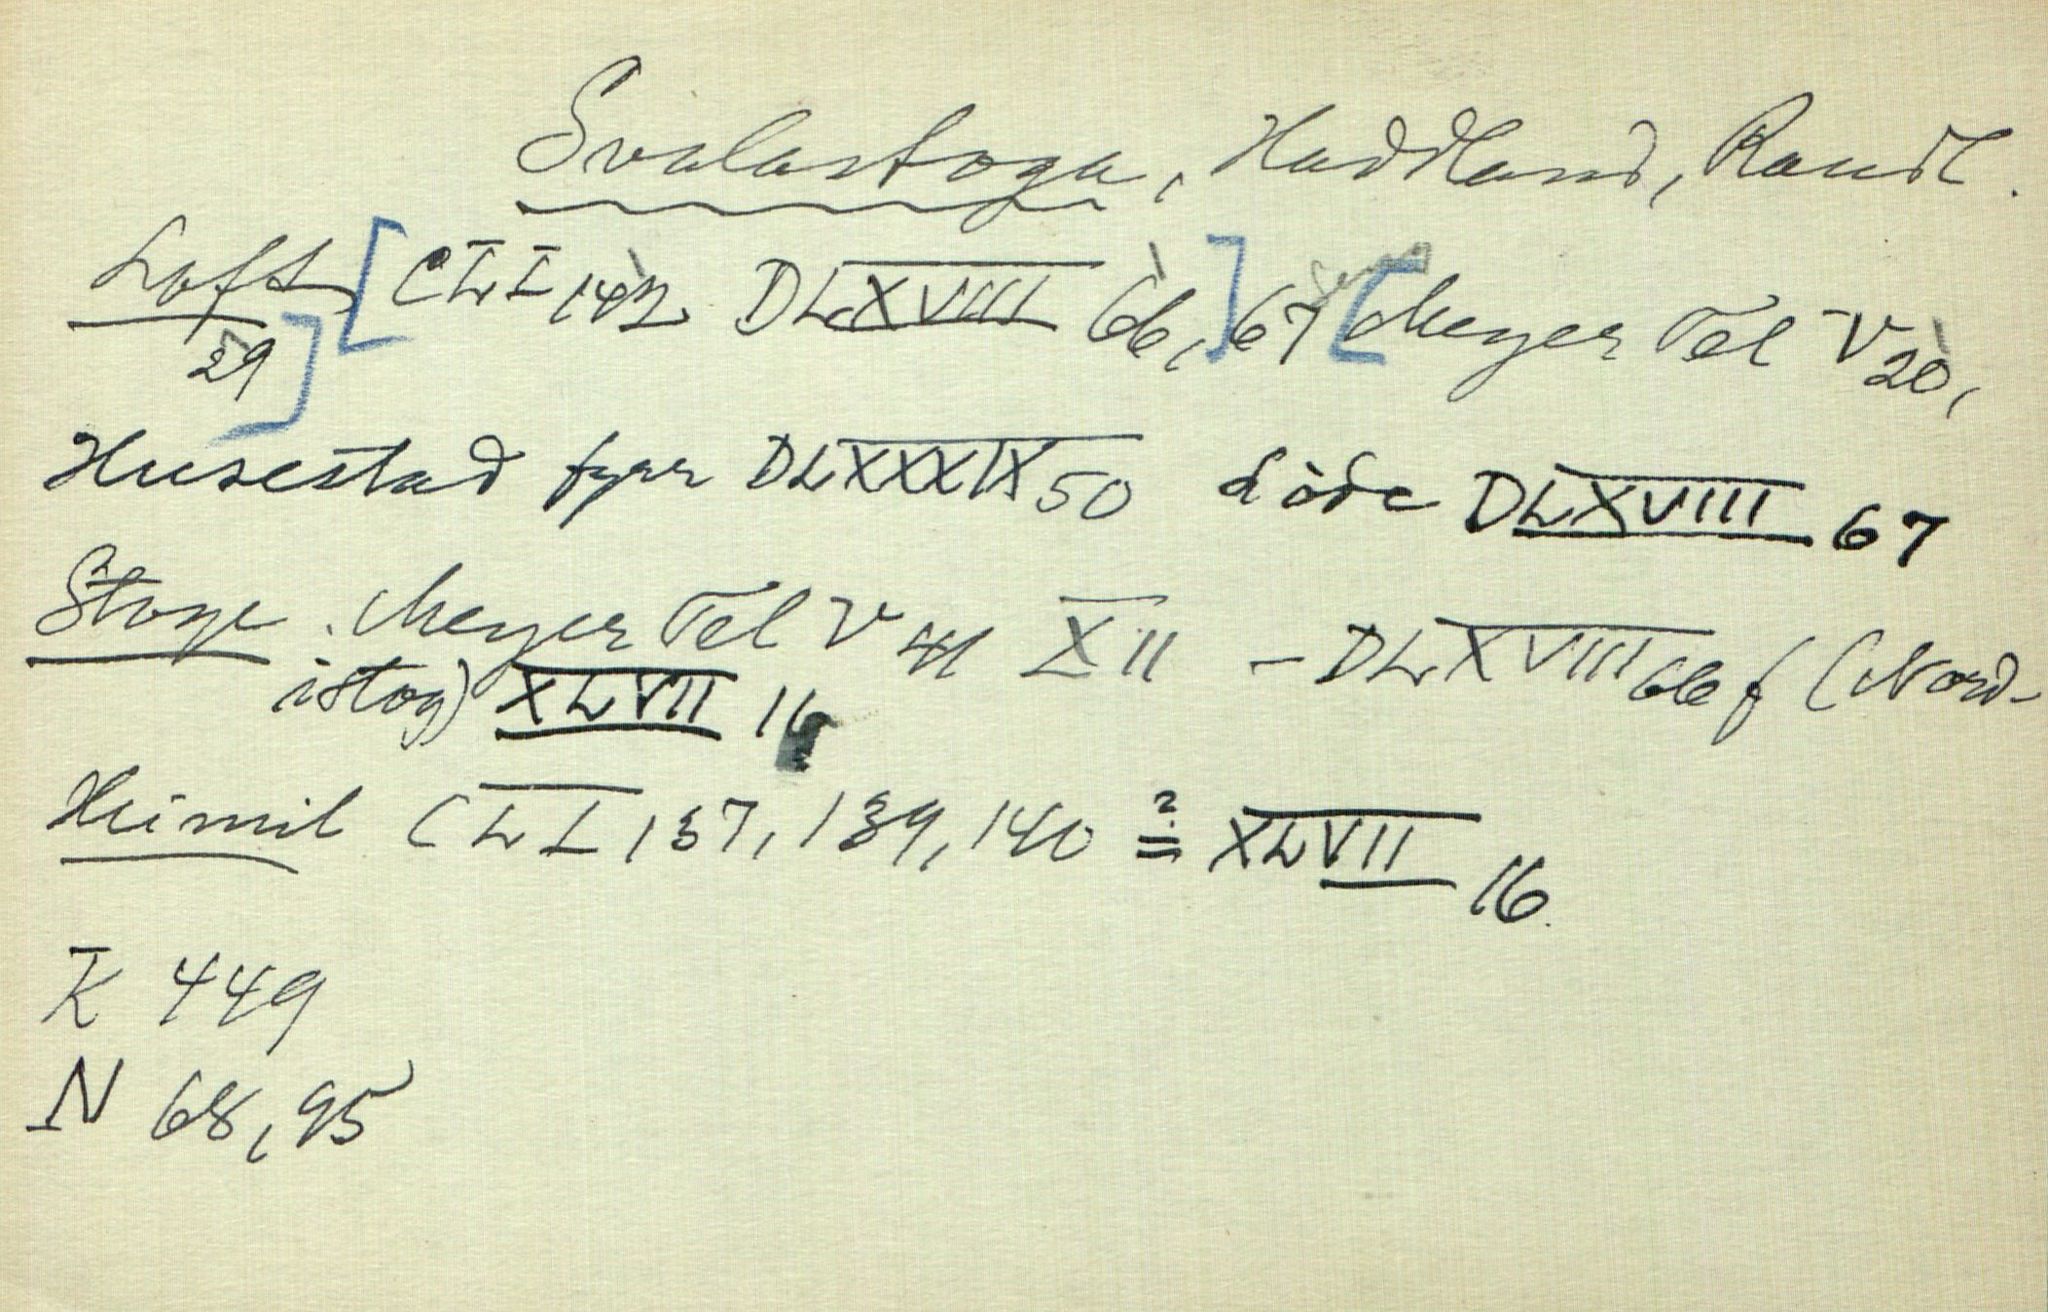 Svalastoga, Haddland, Raudl.
Loft [CLI 142 DLXVIII 66,] 67 [Meyer Tel V 20,
29]
Husestad fyrr DLXXXIX 50 Löde DLXVIII 67
Stoge. Meyer Tel V 41 XII - DLXVIII 66 f (Nord-
istog) XLVII 16
Heimil CLI 137, 139, 140 ?= XLVII 16.
K 449
N 68, 95